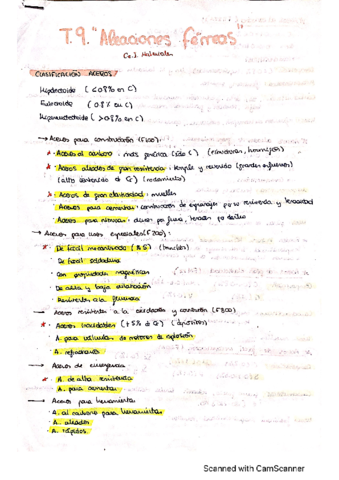 T.9. "Aleaciones férreas"
Cc. I. Materiales
CLASIFICACIÓN ACEROS
Hipoeutectoide (≤0.8% en C)
Eutectoide (0.8% en C)
Hipereutectoide (>0.8% en C)
→ Aceros para construcción (F100):
* · Aceros al carbono: más genérica (sólo C) (hormigón)
* · Aceros aleados de gran resistencia: temple y revenido (grandes esfuerzos)
(alto contenido de C) (rodamientos)
* · Aceros de gran elasticidad: muelles
· Aceros para cementar: combinación de resistencia y tenacidad
· Aceros para nitrurar: duros por fuera, tenaces por dentro
→ Aceros para usos especiales (F200):
* · De fácil mecanizado (tornillos)
· De fácil soldadura
· Con propiedades magnéticas
· De alta y baja dilatación
· Resistentes a la fluencia
→ Aceros resistentes a la oxidación y corrosión (F300)
* · Aceros inoxidables
· A. para válvulas de motores de explosión
· A. refractarios
→ Aceros de emergencia
* · A. de alta resistencia
· A. para cementar
→ Aceros para herramientas
· A. al carbono para herramientas
· A. aleados
· A. rápidos
Scanned with CamScanner